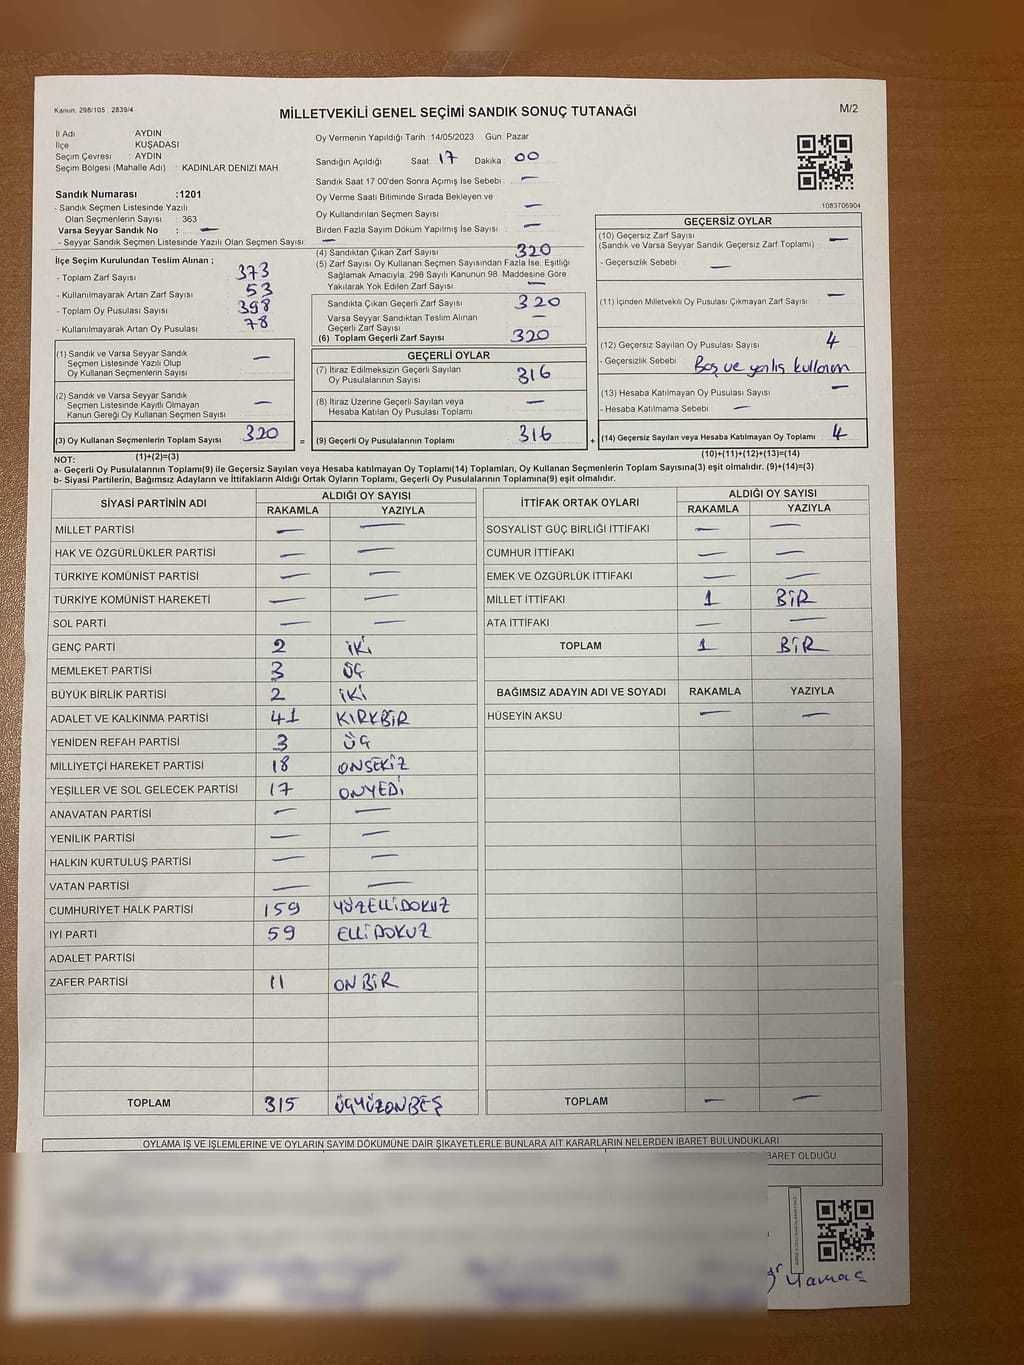 Kanun: 298/105 , 2839/4
MİLLETVEKİLİ GENEL SEÇİMİ SANDIK SONUÇ TUTANAĞI
M/2
İl Adı : AYDIN
İlçe : KUŞADASI
Seçim Çevresi : AYDIN
Seçim Bölgesi (Mahalle Adı) : KADINLAR DENİZİ MAH
Sandık Numarası :1201
- Sandık Seçmen Listesinde Yazılı
Olan Seçmenlerin Sayısı : 363
Varsa Seyyar Sandık No : —
- Seyyar Sandık Seçmen Listesinde Yazılı Olan Seçmen Sayısı: —
İlçe Seçim Kurulundan Teslim Alınan ;
- Toplam Zarf Sayısı 373
- Kullanılmayarak Artan Zarf Sayısı 53
- Toplam Oy Pusulası Sayısı 398
- Kullanılmayarak Artan Oy Pusulası 78
(1) Sandık ve Varsa Seyyar Sandık
Seçmen Listesinde Yazılı Olup
Oy Kullanan Seçmenlerin Sayısı —
(2) Sandık ve Varsa Seyyar Sandık
Seçmen Listesinde Kayıtlı Olmayan
Kanun Gereği Oy Kullanan Seçmen Sayısı —
(3) Oy Kullanan Seçmenlerin Toplam Sayısı 320 =
(1)+(2)=(3)
Oy Vermenin Yapıldığı Tarih :14/05/2023 Gün: Pazar
Sandığın Açıldığı Saat : 17 Dakika : 00
Sandık Saat 17:00'den Sonra Açımış İse Sebebi : —
Oy Verme Saati Bitiminde Sırada Bekleyen ve
Oy Kullandırılan Seçmen Sayısı —
Birden Fazla Sayım Döküm Yapılmış İse Sayısı : —
(4) Sandıktan Çıkan Zarf Sayısı 320
(5) Zarf Sayısı Oy Kullanan Seçmen Sayısından Fazla İse, Eşitliği
Sağlamak Amacıyla, 298 Sayılı Kanunun 98. Maddesine Göre
Yakılarak Yok Edilen Zarf Sayısı —
Sandıkta Çıkan Geçerli Zarf Sayısı 320
Varsa Seyyar Sandıktan Teslim Alınan
Geçerli Zarf Sayısı —
(6) Toplam Geçerli Zarf Sayısı 320
GEÇERLİ OYLAR
(7) İtiraz Edilmeksizin Geçerli Sayılan
Oy Pusulalarının Sayısı 316
(8) İtiraz Üzerine Geçerli Sayılan veya
Hesaba Katılan Oy Pusulası Toplamı —
(9) Geçerli Oy Pusulalarının Toplamı 316 +
1083706904
GEÇERSİZ OYLAR
(10) Geçersiz Zarf Sayısı
(Sandık ve Varsa Seyyar Sandık Geçersiz Zarf Toplamı) —
- Geçersizlik Sebebi : —
(11) İçinden Milletvekili Oy Pusulası Çıkmayan Zarf Sayısı —
(12) Geçersiz Sayılan Oy Pusulası Sayısı 4
- Geçersizlik Sebebi : Boş ve yanlış kullanım
(13) Hesaba Katılmayan Oy Pusulası Sayısı —
- Hesaba Katılmama Sebebi : —
(14) Geçersiz Sayılan veya Hesaba Katılmayan Oy Toplamı 4
(10)+(11)+(12)+(13)=(14)
NOT:
a- Geçerli Oy Pusulalarının Toplamı(9) ile Geçersiz Sayılan veya Hesaba katılmayan Oy Toplamı(14) Toplamları, Oy Kullanan Seçmenlerin Toplam Sayısına(3) eşit olmalıdır. (9)+(14)=(3)
b- Siyasi Partilerin, Bağımsız Adayların ve İttifakların Aldığı Ortak Oyların Toplamı, Geçerli Oy Pusulalarının Toplamına(9) eşit olmalıdır.
SİYASİ PARTİNİN ADI ALDIĞI OY SAYISI
RAKAMLA YAZIYLA
MİLLET PARTİSİ — —
HAK VE ÖZGÜRLÜKLER PARTİSİ — —
TÜRKİYE KOMÜNİST PARTİSİ — —
TÜRKİYE KOMÜNİST HAREKETİ — —
SOL PARTİ — —
GENÇ PARTİ 2 İKİ
MEMLEKET PARTİSİ 3 ÜÇ
BÜYÜK BİRLİK PARTİSİ 2 İKİ
ADALET VE KALKINMA PARTİSİ 41 KIRKBİR
YENİDEN REFAH PARTİSİ 3 ÜÇ
MİLLİYETÇİ HAREKET PARTİSİ 18 ONSEKİZ
YEŞİLLER VE SOL GELECEK PARTİSİ 17 ONYEDİ
ANAVATAN PARTİSİ — —
YENİLİK PARTİSİ — —
HALKIN KURTULUŞ PARTİSİ — —
VATAN PARTİSİ — —
CUMHURİYET HALK PARTİSİ 159 YÜZELLİDOKUZ
İYİ PARTİ 59 ELLİDOKUZ
ADALET PARTİSİ
ZAFER PARTİSİ 11 ONBİR
TOPLAM 315 ÜÇYÜZONBEŞ
İTTİFAK ORTAK OYLARI ALDIĞI OY SAYISI
RAKAMLA YAZIYLA
SOSYALİST GÜÇ BİRLİĞİ İTTİFAKI — —
CUMHUR İTTİFAKI — —
EMEK VE ÖZGÜRLÜK İTTİFAKI — —
MİLLET İTTİFAKI 1 BİR
ATA İTTİFAKI — —
TOPLAM 1 BİR
BAĞIMSIZ ADAYIN ADI VE SOYADI RAKAMLA YAZIYLA
HÜSEYİN AKSU — —
TOPLAM — —
OYLAMA İŞ VE İŞLEMLERİNE VE OYLARIN SAYIM DÖKÜMÜNE DAİR ŞİKAYETLERLE BUNLARA AİT KARARLARIN NELERDEN İBARET BULUNDUKLARI
BARET OLDUĞU
Yamaç